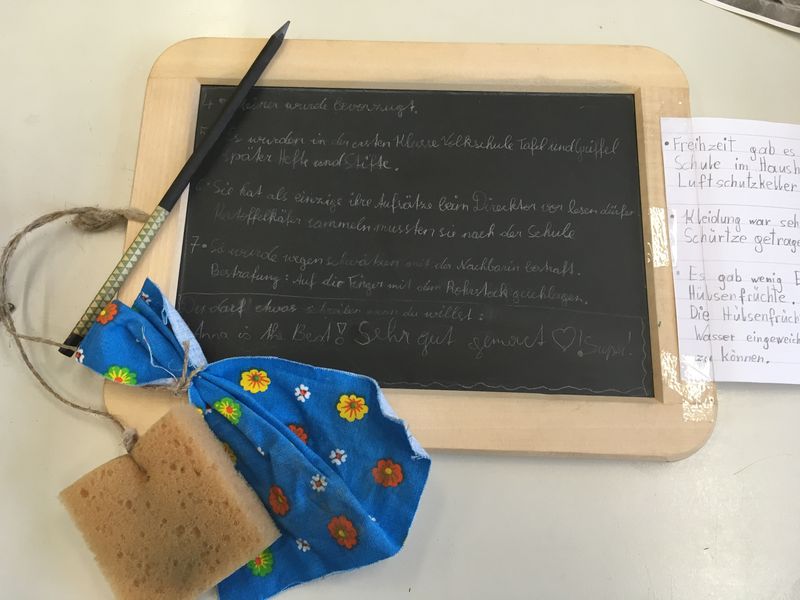 4. Keiner wurde bevorzugt.
5. Es wurden in der ersten Klasse Volkschule Tafel und Griffel
später Hefte und Stifte.
6. Sie hat als einzige ihre Aufsätze beim Direktor vor lesen dürfen
Kartoffelkäfer sammeln mussten sie nach der Schule
7. Es wurde wegen schwätzen mit der Nachbarin bestraft.
Bestrafung: Auf die Finger mit dem Rohrstock geschlagen.
Du darf etwas schreiben wenn du willst:
Anna is the Best! Sehr gut gemacht ♡! Super!
• Freihzeit gab es
Schule im Haush
Luftschutzkeller
• Kleidung war seh
Schürtze getrage
• Es gab wenig E
Hülsenfrüchte.
Die Hülsenfrüch
Wasser eingeweich
zu können.